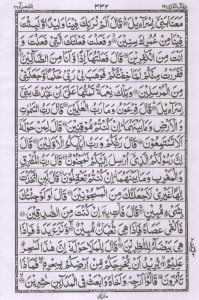 وقال الذين ١٩ ٣٣٢ الشعراء ٢٦
مَعَنَا بَنِيْٓ اِسْرَآءِيْلَ ۝ قَالَ اَلَمْ نُرَبِّكَ فِيْنَا وَلِيْدًا وَّلَبِثْتَ
فِيْنَا مِنْ عُمُرِكَ سِنِيْنَ ۝ وَفَعَلْتَ فَعْلَتَكَ الَّتِيْ فَعَلْتَ وَ
اَنْتَ مِنَ الْكٰفِرِيْنَ ۝ قَالَ فَعَلْتُهَآ اِذًا وَّاَنَا مِنَ الضَّآلِّيْنَ ۝
فَفَرَرْتُ مِنْكُمْ لَمَّا خِفْتُكُمْ فَوَهَبَ لِيْ رَبِّيْ حُكْمًا وَّجَعَلَنِيْ مِنَ
الْمُرْسَلِيْنَ ۝ وَتِلْكَ نِعْمَةٌ تَمُنُّهَا عَلَيَّ اَنْ عَبَّدْتَّ بَنِيْٓ اِسْرَآءِيْلَ ۝
قَالَ فِرْعَوْنُ وَمَا رَبُّ الْعٰلَمِيْنَ ۝ قَالَ رَبُّ السَّمٰوٰتِ
وَالْاَرْضِ وَمَا بَيْنَهُمَا ۭ اِنْ كُنْتُمْ مُّوْقِنِيْنَ ۝ قَالَ لِمَنْ حَوْلَهٗٓ
اَلَا تَسْتَمِعُوْنَ ۝ قَالَ رَبُّكُمْ وَرَبُّ اٰبَآىِٕكُمُ الْاَوَّلِيْنَ ۝ قَالَ
اِنَّ رَسُوْلَكُمُ الَّذِيْٓ اُرْسِلَ اِلَيْكُمْ لَمَجْنُوْنٌ ۝ قَالَ رَبُّ الْمَشْرِقِ
وَالْمَغْرِبِ وَمَا بَيْنَهُمَا ۭ اِنْ كُنْتُمْ تَعْقِلُوْنَ ۝ قَالَ لَىِٕنِ اتَّخَذْتَ
اِلٰهًا غَيْرِيْ لَاَجْعَلَنَّكَ مِنَ الْمَسْجُوْنِيْنَ ۝ قَالَ اَوَلَوْ جِئْتُكَ
بِشَيْءٍ مُّبِيْنٍ ۝ قَالَ فَاْتِ بِهٖٓ اِنْ كُنْتَ مِنَ الصّٰدِقِيْنَ ۝
فَاَلْقٰى عَصَاهُ فَاِذَا هِيَ ثُعْبَانٌ مُّبِيْنٌ ۝ وَّنَزَعَ يَدَهٗ فَاِذَا
هِيَ بَيْضَآءُ لِلنّٰظِرِيْنَ ۝ قَالَ لِلْمَلَاِ حَوْلَهٗٓ اِنَّ هٰذَا لَسٰحِرٌ
عَلِيْمٌ ۝ يُّرِيْدُ اَنْ يُّخْرِجَكُمْ مِّنْ اَرْضِكُمْ بِسِحْرِهٖ ڰ فَمَاذَا
تَاْمُرُوْنَ ۝ قَالُوْٓا اَرْجِهْ وَاَخَاهُ وَابْعَثْ فِي الْمَدَآىِٕنِ حٰشِرِيْنَ ۝